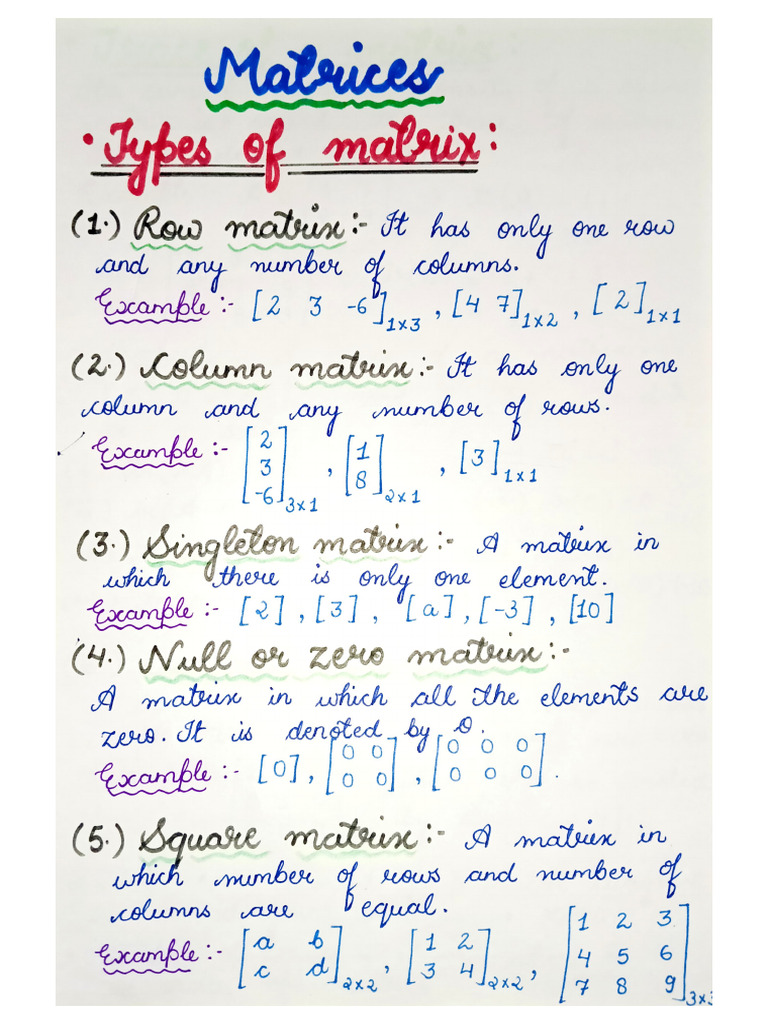 Matrices
• Types of matrix:
(1.) Row matrix:- It has only one row
and any number of columns.
Example:- [2 3 -6]1×3 , [4 7]1×2 , [2]1×1
(2.) Column matrix:- It has only one
column and any number of rows.
Example:- [2 3 -6]3×1 , [1 8]2×1 , [3]1×1
(3.) Singleton matrix:- A matrix in
which there is only one element.
Example:- [2] , [3] , [a] , [-3] , [10]
(4.) Null or zero matrix:-
A matrix in which all the elements are
zero. It is denoted by O.
Example:- [0] , [0 0 0 0] , [0 0 0 0 0 0] .
(5.) Square matrix:- A matrix in
which number of rows and number of
columns are equal.
Example:- [a b c d]2×2 , [1 2 3 4]2×2 , [1 2 3 4 5 6 7 8 9]3×3